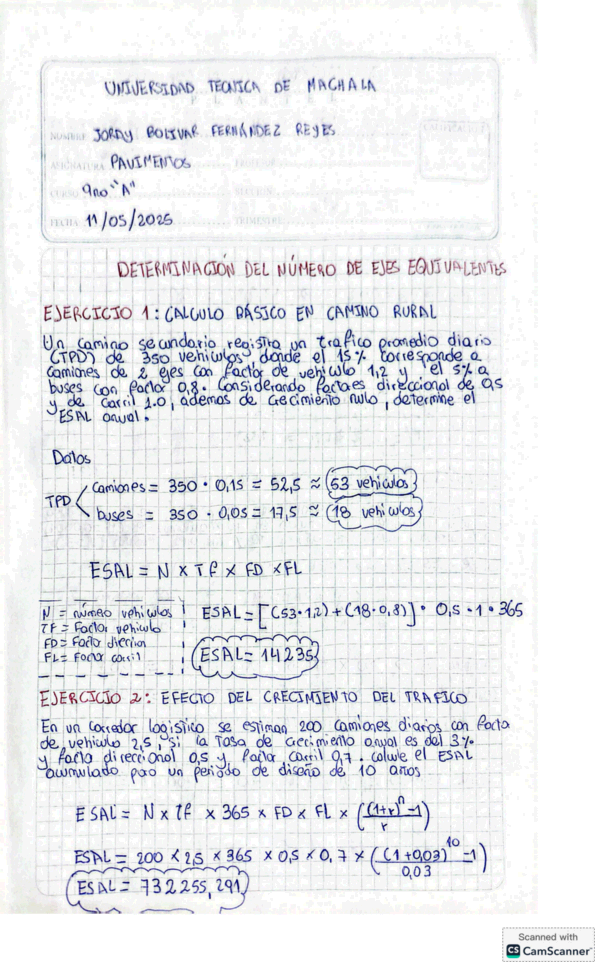 UNIVERSIDAD TECNICA DE MACHALA
PLANTEL
NOMBRE JORDY BOLIVAR FERNÁNDEZ REYES
ASIGNATURA PAVIMENTOS
CURSO 9no "A"
FECHA 11/05/2025 TRIMESTRE
DETERMINACIÓN DEL NÚMERO DE EJES EQUIVALENTES
EJERCICIO 1: CALCULO BÁSICO EN CAMINO RURAL
Un camino secundario registra un trafico promedio diario
(TPD) de 350 vehiculos, donde el 15% corresponde a
camiones de 2 ejes con factor de vehiculo 1,2 y el 5% a
buses con factor 0,8. Considerando factores direccional de 0,5
y de carril 1.0, ademas de crecimiento nulo, determine el
ESAL anual.
Datos
TPD
camiones = 350 · 0,15 = 52,5 ≈ 53 vehiculos
buses = 350 · 0,05 = 17,5 ≈ 18 vehiculos
ESAL = N x Tf x FD x FL
N = número vehiculos
TF = Factor vehiculo
FD = Factor direccion
FL = Factor carril
ESAL = [(53·1,2) + (18·0,8)] · 0,5 · 1 · 365
ESAL = 14235
EJERCICIO 2: EFECTO DEL CRECIMIENTO DEL TRAFICO
En un corredor logistico se estiman 200 camiones diarios con factor
de vehiculo 2,5, si la tasa de crecimiento anual es del 3%
y factor direccional 0,5 y factor carril 0,7. calcule el ESAL
acumulado para un periodo de diseño de 10 años
ESAL = N x Tf x 365 x FD x FL x ((1+r)^n -1 / r)
ESAL = 200 x 2,5 x 365 x 0,5 x 0,7 x ((1+0,03)^10 -1 / 0,03)
ESAL = 732255,291
Scanned with
CS CamScanner